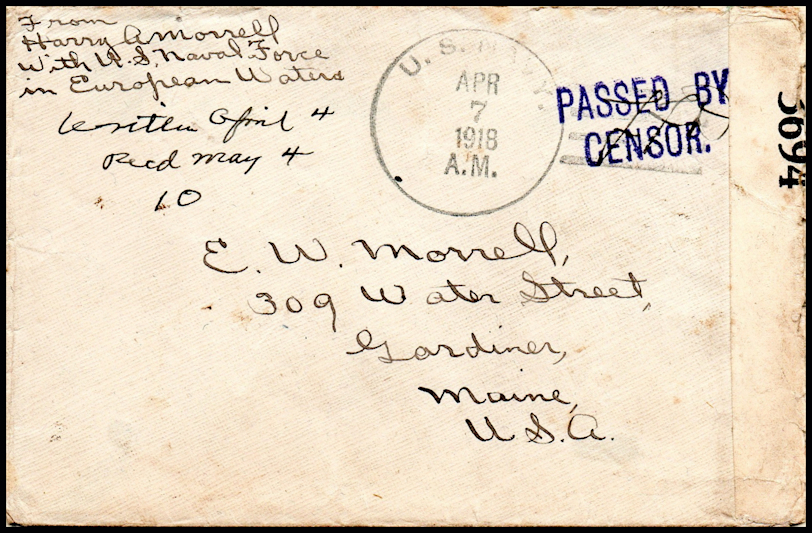 From
Harry A Morrell
With U.S. Naval Force
in European Waters
Written April 4
Recd May 4
10
U. S. NAVY.
APR
7
1918
A.M.
PASSED BY
CENSOR.
3694
E. W. Morrell,
309 Water Street,
Gardiner,
Maine,
U.S.A.